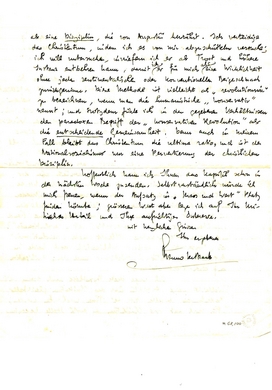 als eine Disziplin, die von Augustin herrührt. Ich verteidige
das Christentum, indem ich es von mir abzuschütteln versuche:
ich will untersuchen, inwiefern ich es als Trost und höhere
entbehren kann, damit es für mich seine Wirklichkeit
ohne jede sentimentalische oder konventionelle Beigeschmack
Diese Methode ist vielleicht als „revolutionär“
zu bezeichnen, wenn man die humanistische „konservativ“
nennt; und trotzdem finde ich in den gegebenen Verhältnissen
den paradoxen Begriff der „konservativen Revolution“ als
die entscheidende Gemeinsamkeit, denn auch in meinem
Fall bleibt das Christentum die ultima ratio, und ist der
Nationalsozialismus nur eine der christlichen
Disziplin.
Hoffentlich kann ich Ihnen das Kapitel schon in
der nächsten Woche zusenden. Selbstverständlich würde es
mich freuen, wenn der Aufsatz in „Mass und Wert“ Platz
finden könnte; grösseren Wert aber lege ich auf Ihr
Urteil und Ihr Interesse.
mit herzlichen Grüssen
Ihr ergebener